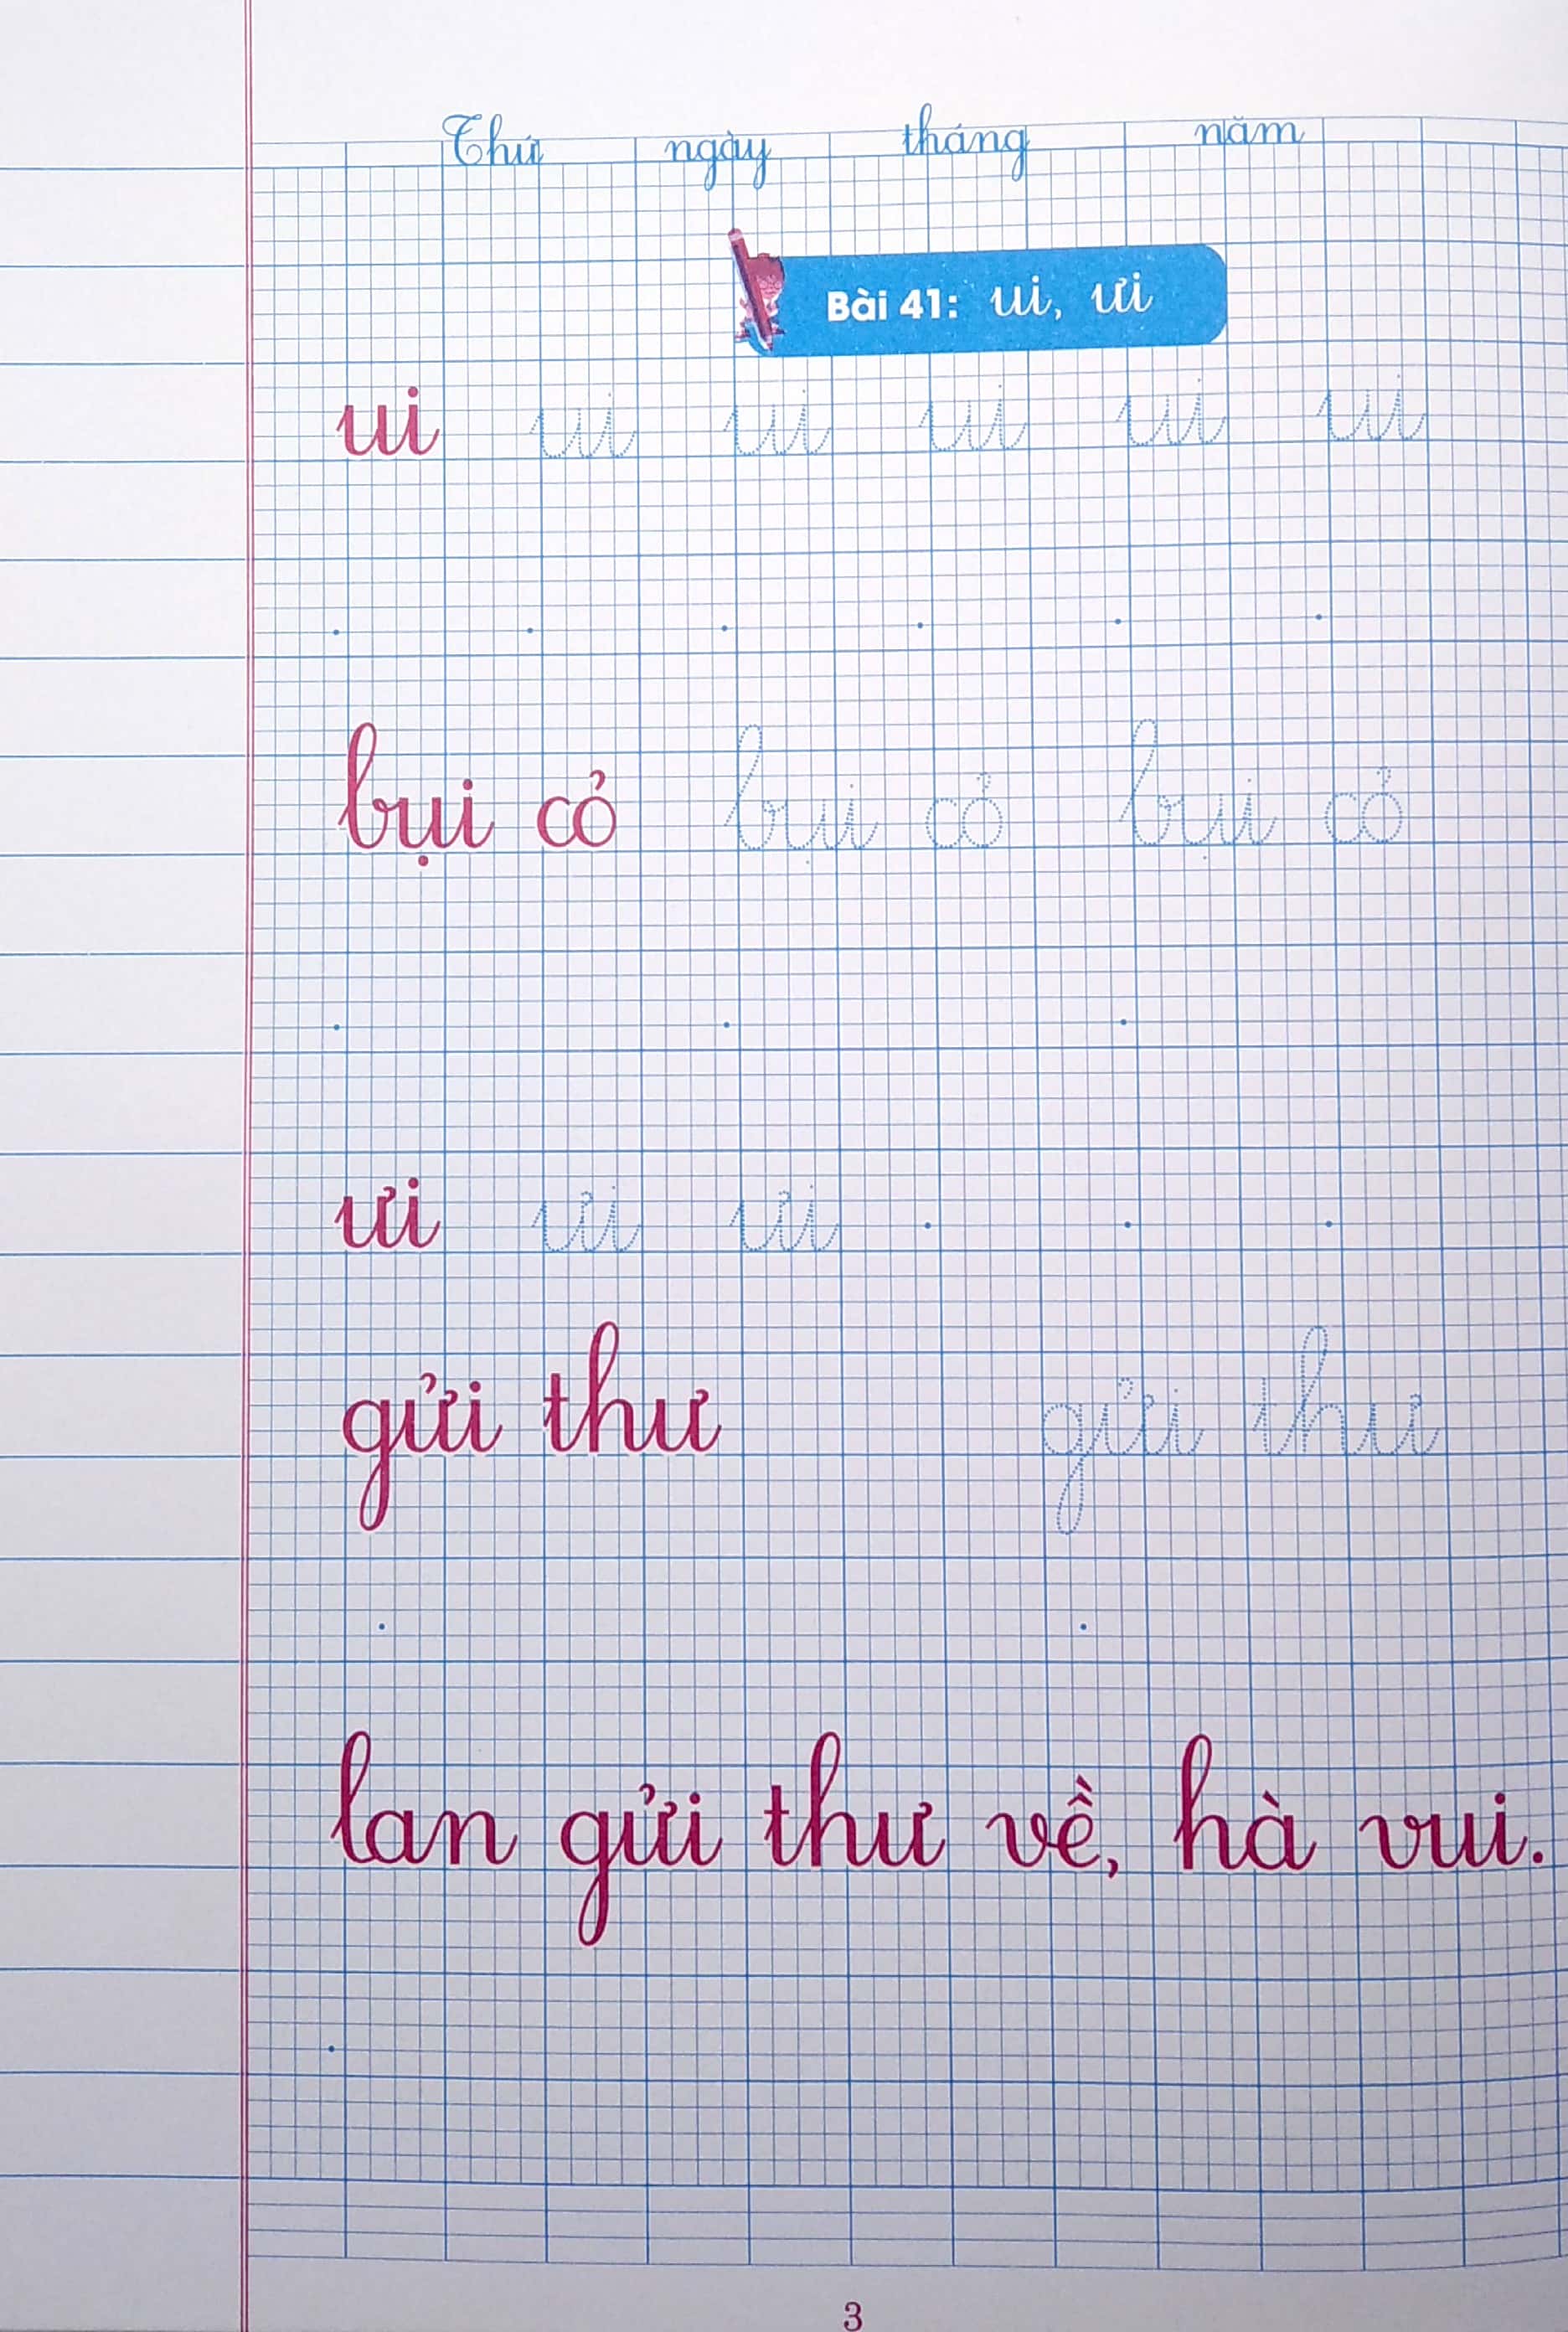 Thứ ngày tháng năm
Bài 41: ui, ưi
ui ui ui ui ui ui
bụi cỏ bụi cỏ bụi cỏ
ưi ưi ưi
gửi thư gửi thư
lan gửi thư về, hà vui.
3